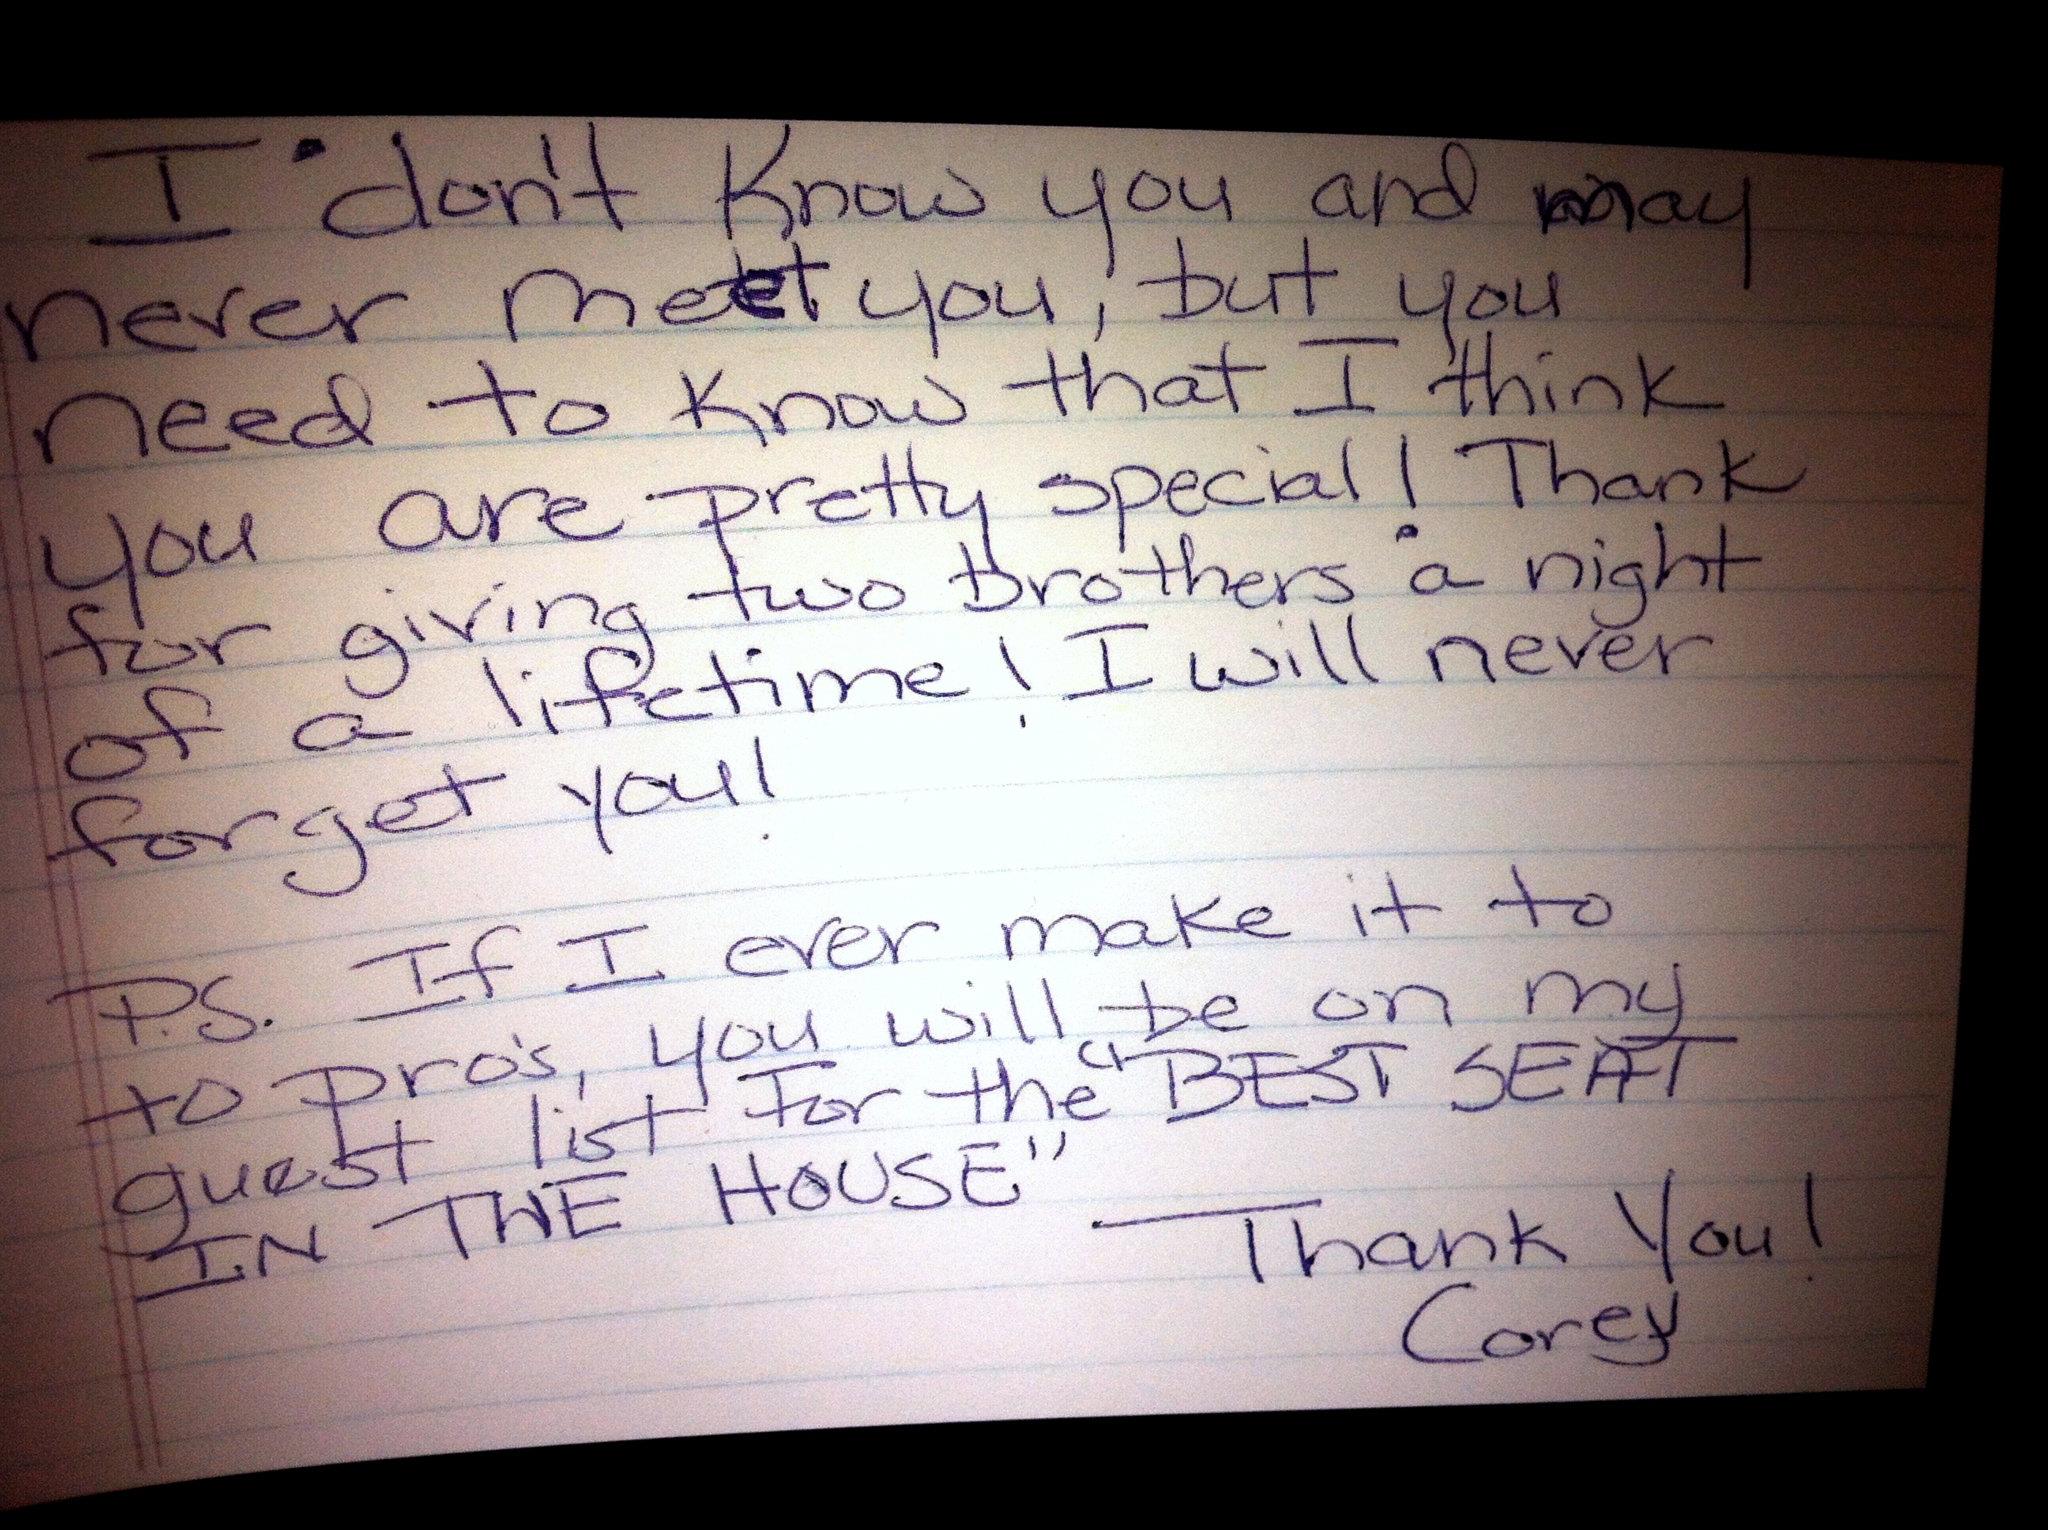 I don't know you and may
never meet you, but you
need to know that I think
you are pretty special! Thank
for giving two brothers a night
of a lifetime! I will never
forget you!
P.S. If I ever make it to
to pro's, you will be on my
guest list for the "BEST SEAT
IN THE HOUSE"
Thank You!
Corey